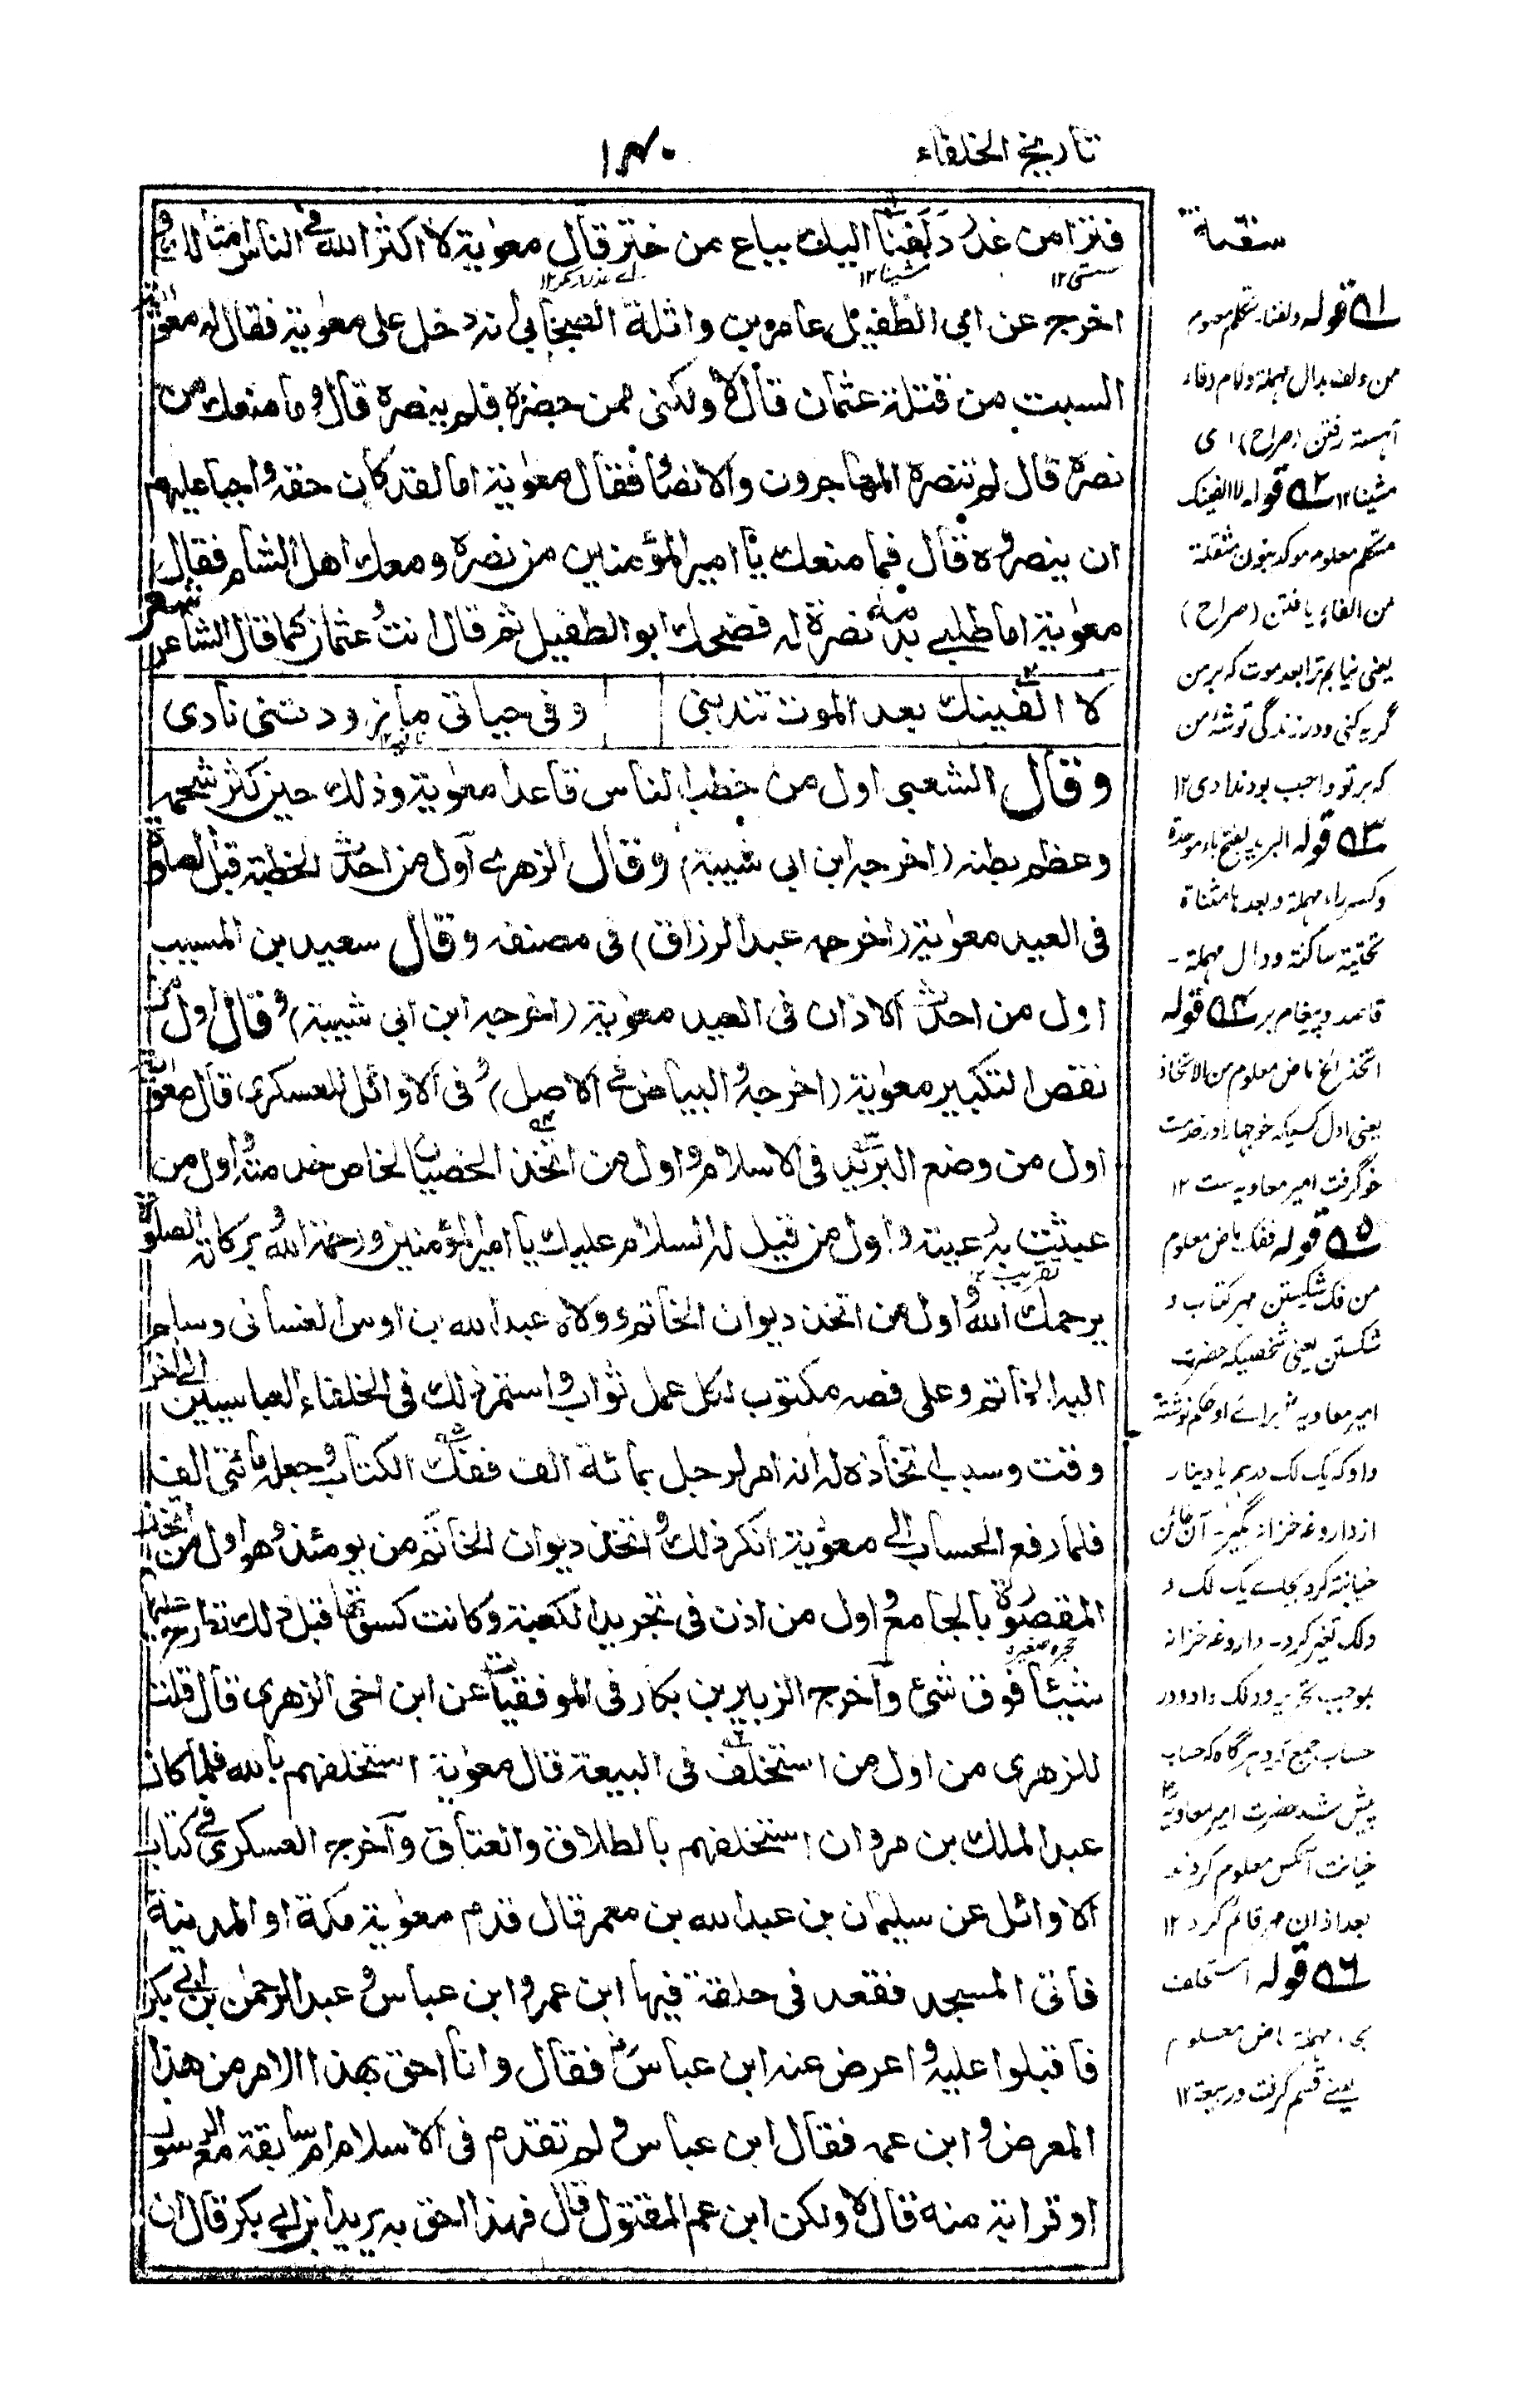 تاريخ الخلفاء
١٤٠
فترا من غدر دلفنا اليك بباع من ختر قال معوية لا اكثر الله في الناس امثالك و
اخرج عن ابي الطفيل عامر بن واثلة الصحابي انه دخل على معوية فقال له معوية
الست من قتلة عثمان قال لا ولكني ممن حضره فلم ينصره قال وما منعك من
نصره قال لم تنصره المهاجرون والانصار فقال معوية اما لقد كان حقه واجبا عليهم
ان ينصروه قال فما منعك يا امير المؤمنين من نصره ومعك اهل الشام فقال
معوية اما طلبي بدمه نصرة له فضحك ابو الطفيل ثم قال انت وعثمان كما قال الشاعر شعر
لا الفينك بعد الموت تندبني وفي حياتي ما زودتني زادي
وقال الشعبي اول من خطب الناس قاعدا معوية وذلك حين كثر شحمه
وعظم بطنه (اخرجه ابن ابي شيبة) وقال الزهري اول من احدث الخطبة قبل الصلوة
في العيد معوية (اخرجه عبد الرزاق) في مصنفه وقال سعيد بن المسيب
اول من احدث الاذان في العيد معوية (اخرجه ابن ابي شيبة) وقال اول من
نقص التكبير معوية (اخرجه البياض في الاصل) وفي الاوائل للعسكري قال معوية
اول من وضع البريد في الاسلام واول من اتخذ الخصيان لخاص خدمته واول من
عبثت به رعيته واول من قيل له السلام عليك يا امير المؤمنين ورحمة الله وبركاته الصلوة
يرحمك الله واول من اتخذ ديوان الخاتم وولاه عبد الله بن اوس الغساني وسلم
اليه الخاتم وعلى فصه مكتوب لكل عمل ثواب واستمر ذلك في الخلفاء العباسيين الى اخر
وقت وسبب اتخاذه له انه امر لرجل بمائة الف ففك الكتاب وجعله مائتي الف
فلما رفع الحساب الى معوية انكر ذلك واتخذ ديوان الخاتم من يومئذ وهو اول من اتخذ
المقصورة بالجامع واول من اذن في تجريد الكعبة وكانت كسوتها قبل ذلك تطرح عليها
شيئا فوق شئ وآخرج الزبير بن بكار في الموفقيات عن ابن اخي الزهري قال قلت
للزهري من اول من استحلف في البيعة قال معوية استحلفهم بالله فلما كان
عبد الملك بن مروان استحلفهم بالطلاق والعتاق وآخرج العسكري في كتاب
الاوائل عن سليمان بن عبد الله بن معمر قال قدم معوية مكة او المدينة
فأتى المسجد فقعد في حلقة فيها ابن عمر وابن عباس وعبد الرحمن بن ابي بكر
فأقبلوا عليه واعرض عنه ابن عباس فقال وانا احق بهذا الامر من هذا
المعرض وابن عمه فقال ابن عباس ولم تقدم في الاسلام ام سابقة مع الرسول
او قرابة منه قال لا ولكن ابن عم المقتول قال فهذا احق به يريد ابن ابي بكر قال ان
سستى ١٢
مشينا ١٢
اے غدر و مكر ١٢
حجره صغيره
٥١ قوله دلفنا متكلم معلوم
من دلف بدال مهملة ولام وفاء
آهسته رفتن (صراح) اى
مشينا ١٢ ٥٢ قوله لا الفينك
متكلم معلوم موكد بنون مثقلة
من الفاء يافتن (صراح)
يعنى نيابم ترا بعد موت كه بر من
گريه كنى و در زندگى توشۂ من
كه بر تو واجب بود ندادى ١٢
٥٣ قوله البريد بفتح باء موحده
وكسر راء مهملة وبعدها مثناة
تحتية ساكنة ودال مهملة -
قاصد و پيغام بر ٥٤ قوله
اتخذ الخ ماض معلوم من الاتخاذ
يعنى اول كسيكه خوجها را در خدمت
خود گرفت امير معاويه ست ١٢
٥٥ قوله ففك ماض معلوم
من فك شكستن مهر كتاب و
شكستن يعنى شخصيكه حضرت
امير معاويه براے او حكم نوشته
داد كه يك لك درهم يا دينار
از داروغه خزانه بگير - آن خائن
خيانت كرد بجاے يك لك دو
لك تغير كرد - داروغه خزانه
بموجب تحرير دو لك داد و در
حساب جمع آورد هر گاه كه حساب
پيش شد حضرت امير معاويه
خيانت آنكس معلوم كردند
بعد ازان مهر قائم كرد ١٢
٥٦ قوله استحلف
بحاء مهملة ماض معلوم
يعنے قسم گرفت در بيعة ١٢